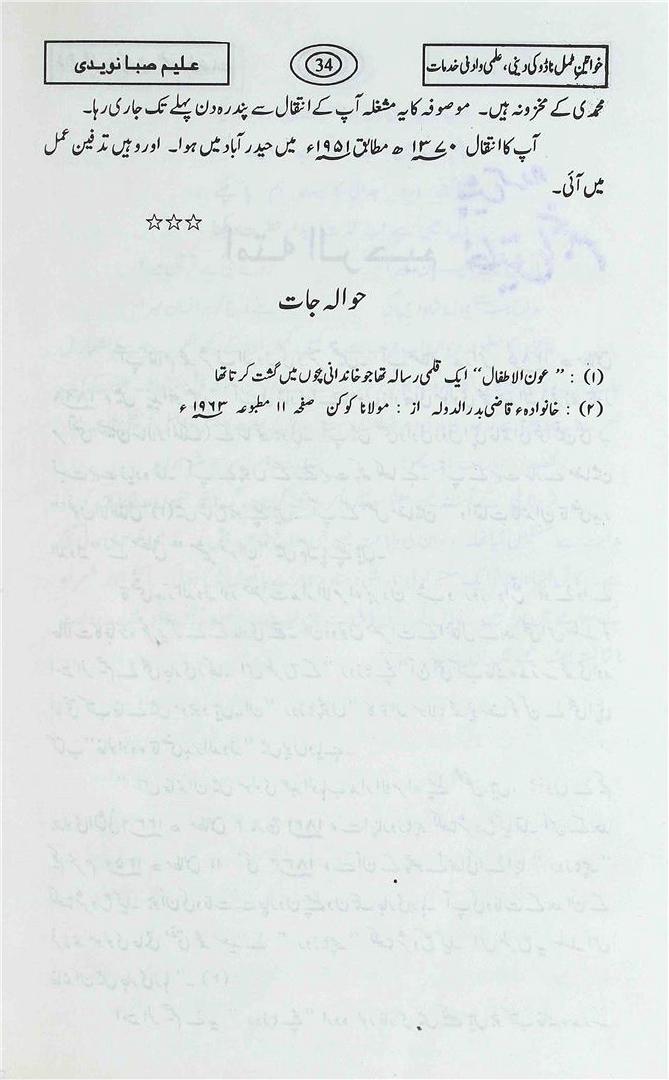 خواتینِ ٹمل ناڈو کی دینی، علمی و ادبی خدمات
34
علیم صبا نویدی
محمدی کے مخزونہ ہیں۔ موصوفہ کا یہ مشغلہ آپ کے انتقال سے پندرہ دن پہلے تک جاری رہا۔
آپ کا انتقال ۱۳۷۰ھ مطابق ۱۹۵۱ء میں حیدرآباد میں ہوا۔ اور وہیں تدفین عمل
میں آئی۔
☆☆☆
حوالہ جات
(۱) : "عون الاطفال" ایک قلمی رسالہ تھا جو خاندانی بچوں میں گشت کرتا تھا
(۲) : خانوادہء قاضی بدرالدولہ از : مولانا کوکن صفحہ ۱۱ مطبوعہ ۱۹۶۳ء